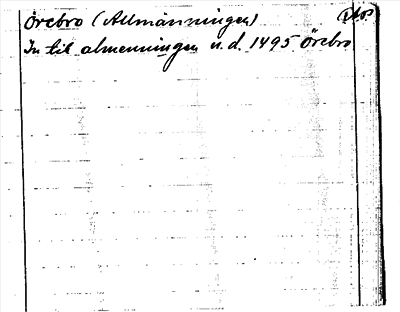 Örebro (Allmänningen)
In til almenningen u.d. 1495 Örebro